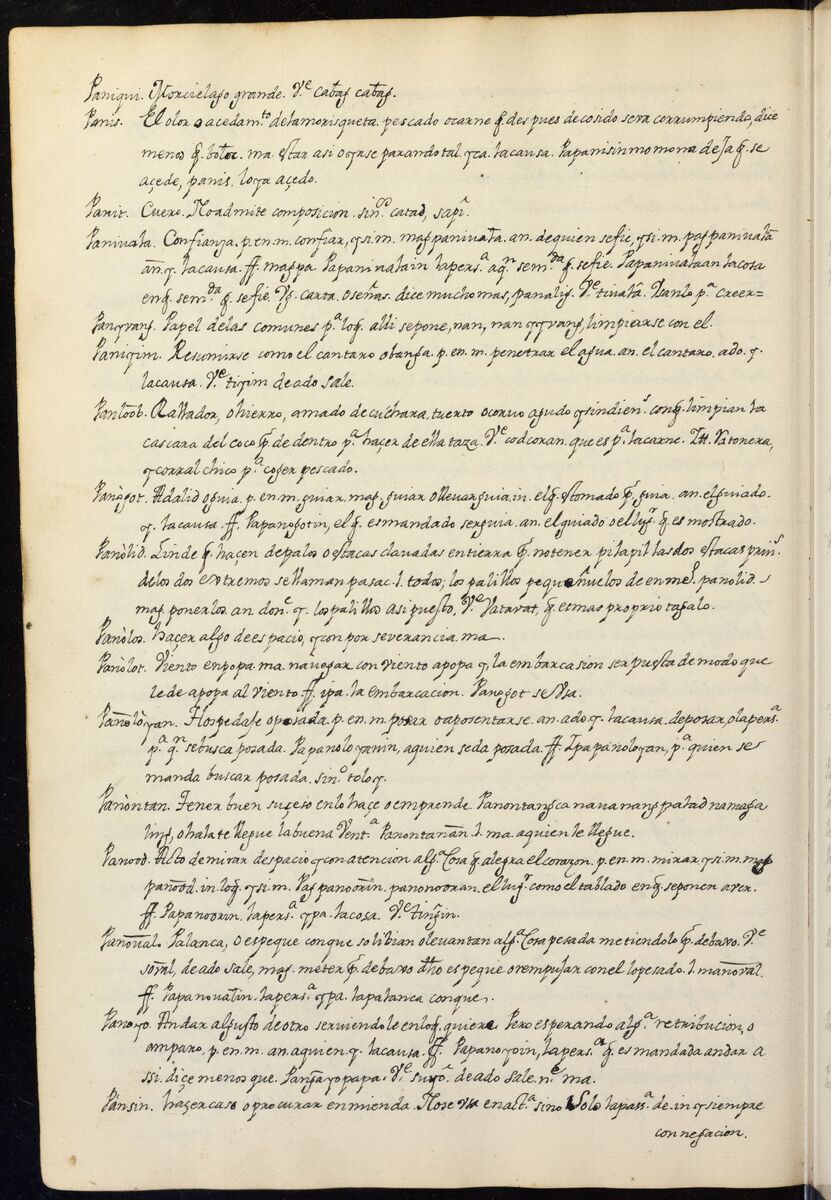 Paniqui. Morcielago grande. V.e catag catag.
Panis. El olor o acedam.to dela morisqueta pescado o carne q̃ despues de cosido se va corrumpiendo, dice
menos q̃ botoc. ma. estar asi o yrse parando tal. yca. la causa. Papanisin mo mona deja q̃ se
açede, panis. lo ya açedo.
Panit. Cuero. No admite composicion. sin.o catad, sapi.
Panivala. Confianza, p. en. m. confiar, y si. m. mag panivala. an. de quien se fie, y si. m. pagpanivala
an. y. la causa. ff. magpa. Papanivalain la pers.a aq.n se m.da q̃ se fie. Papanivalaan la cosa
en q̃ se m.da q̃ se fie. Vg. carta o señas. dice mucho mas, panalig. V.e tivala. Vsanlo p.a creer=
Panyyang. Papel delas comunes p.a loq̃ alli se pone, nan, nanyyang, limpiarse con el.
Paniyim. Resumirse como el cantaro o banga. p. en. m. penetrar el agua. an. el cantaro. ado. y.
la causa. V.e tiyim de ado sale.
Panloob. Rallador, o hierro, amado de cuchara, tuerto o corvo agudo y sin dien.s con q̃ limpian la
cascara del coco p̃. de dentro p.a haçer de ella taza. V.e codcoran. que es p.a la carne. Itt. Ratonera,
y corral chico p.a coger pescado.
Panogot. Adalid o guia. p. en. m. guiar. mag. guiar o llevar guia. in. el q̃ es tomado p̃. guia. an. el guiado.
y. la causa. ff. Papanogotin, el q̃. es mandado ser guia. an. el guiado o el lug.r q̃ es mostrado.
Panolid. Linde q̃ haçen de palos o estacas clavadas en tierra p̃. no tener pilapil las dos estacas prin.s
delos dos extremos se llaman pasac. l. todos; los palillos pequeñuelos de en me.o panolid.
mag. ponerlos. an. don.e y. los palillos asi puesto. V.e Vatavat, q̃ es mas proprio tagalo.
Panolos. haçer algo de espacio, y con por severancia. ma.
Panolot. Viento en popa. ma. navegar con viento a popa y, la embarcasion ser puesta de modo que
le de a popa al viento ff. ipa. la embarcacion. Panogot se vsa.
Panoloyan. Hospedaje o posada. p. en. m. posar o aposentarse. an. ado. y. la causa. de posar, o la pers.a
p.a q.n se busca posada. Papanoloyanin, a quien se da posada. ff. Ipapanoloyan, p.a quien se
manda buscar posada. sin.o toloy.
Panontan. Tener buen suçeso en lo haçe o emprende. Panontang ca nava nang palad na maga
ling, ohala te llegue la buena Vent.a Panontanan. l. ma. a quien le llegue.
Panood. Acto de mirar despacio y con atencion alg.a Cosa q̃ alegra el corazon. p. en. m. mirar, y si. m. mag
panood. in. loq̃. y si. m. Pagpanoorin. panonooran. el lug.r como el tablado en q̃ se ponen a ver.
ff. Papanoorin. la pers.a ypa. la cosa. V.e tingin.
Panoual. Palanca, o espeque con que solibian o levantan alg.a Cosa pesada metiendolo p̃. debaxo. V.e
soval, de ado sale, mag. meter p̃. debaxo dho espeque o rempujar con el lo pesado. l. manoval.
ff. Papanovalin. la pers.a ypa. la palanca conque.
Panoyo. Andar al gusto de otro serviendole en loq̃. quiere. Pero esperando alg.a retribucion, o
amparo, p. en. m. an. a quien. y. la causa. ff. Papanoyoin, la pers.a q̃. es mandada andar a
ssi. diçe menos que. Pangayopapa. V.e suyo. de ado sale. n.e ma.
Pansin. haçer caso o procurar enmienda. No se vsa en act.a sino solo la pass.a de. in. y siempre
con negacion.